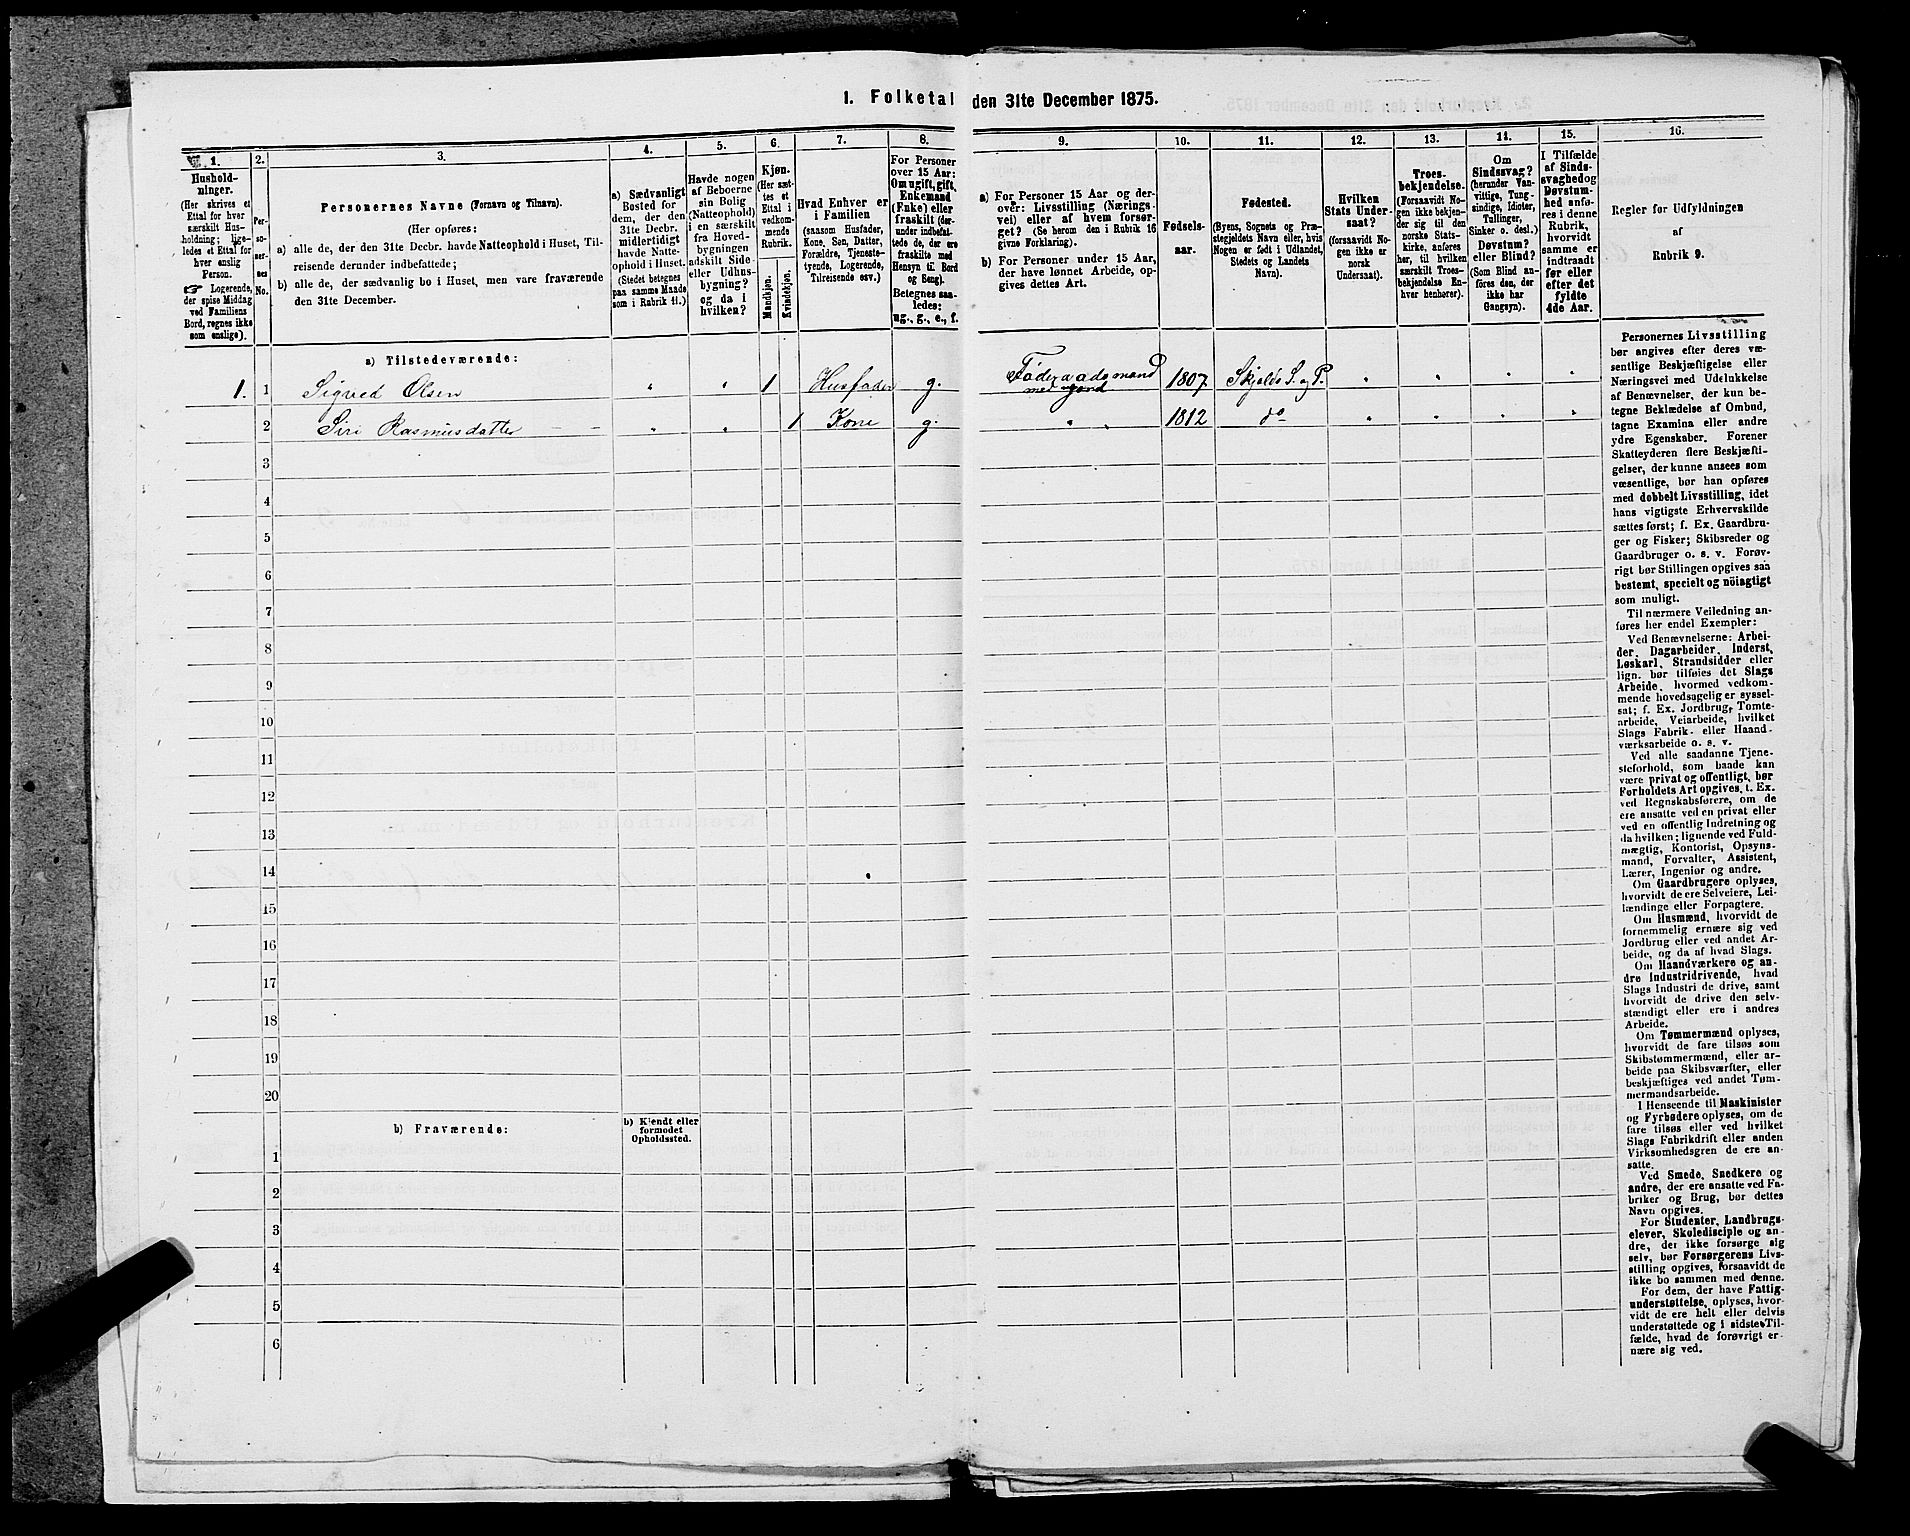 1. Folketal den 31te December 1875.
1. 2. 3. 4. 5. 6. 7. 8. 9. 10. 11. 12. 13. 14. 15. 16.
Hushold-
ninger.
(Her skrives et
Ettal for hver
særskilt Hus-
holdning; lige-
ledes et Ettal for
hver enslig
Person.
☛ Logerende,
der spise Middag
ved Familiens
Bord, regnes ikke
som enslige).
Per-
so-
ner-
nes
No.
Personernes Navne (Fornavn og Tilnavn).
(Her opføres:
a) alle de, der den 31te Decbr. havde Natteophold i Huset, Til-
reisende derunder indbefattede;
b) alle de, der sædvanlig bo i Huset, men vare fraværende
den 31te December.
a) Sædvanligt
Bosted for
dem, der den
31te Decbr.
midlertidigt
havde Natte-
ophold i Huset.
(Stedet betegnes
paa samme Maade
som i Rubrik 11.)
Havde nogen
af Beboerne
sin Bolig
(Natteophold)
i en særskilt
fra Hoved-
bygningen
adskilt Side-
eller Udhus-
bygning?
og da i
hvilken?
Kjøn.
(Her sæt-
tes et
Ettal i
vedkom-
mende
Rubrik.
Mandkjøn.
Kvindekjøn.
Hvad Enhver er
i Familien
(saasom Husfader,
Kone, Søn, Datter,
Forældre, Tjeneste-
tyende, Logerende,
Tilreisende osv.)
For Personer
over 15 Aar:
Om ugift, gift,
Enkemand
(Enke) eller
fraskilt (der-
under indbefat-
tede de, der ere
fraskilte med
Hensyn til Bord
og Seng).
Betegnes saa-
ledes:
ug., g., e., f.
a) For Personer 15 Aar og der-
over: Livsstilling (Nærings-
vei) eller af hvem forsør-
get? (Se herom den i Rubrik 16
givne Forklaring).
b) For Personer under 15 Aar,
der have lønnet Arbeide, op-
gives dettes Art.
Fødsels-
aar.
Fødested.
(Byens, Sognets og Præ-
stegjeldets Navn eller, hvis
Nogen er født i Udlandet,
Stedets og Landets
Navn).
Hvilken
Stats Under-
saat?
(forsaavidt No-
gen ikke er
norsk
Undersaat).
Troes-
bekjendelse.
(Forsaavidt No-
gen ikke bekjen-
der sig til den
norske Stats-
kirke, anføres
her, til hvilken
særskilt Troes-
bekjendelse En-
hver henhører).
Om
Sindssvag?
(herunder Van-
vittige, Tung-
sindige, Idioter,
Tullinger,
Sinker o. desl.)
Døvstum?
eller Blind?
(Som Blind an-
føres den, der
ikke har
Gangsyn).
I Tilfælde
af Sinds-
svaghed og
Døvstum-
hed anfø-
res i denne
Rubrik,
hvorvidt
samme er
indtraadt
før eller
efter det
fyldte
4de Aar.
Regler for Udfyldningen
af
Rubrik 9.
a) Tilstedeværende:
1. 1 Sigved Olsen " " 1 Husfader g. Føderaadsmand med Jord 1807 Skjold S. og P. " " " "
2 Siri Rasmusdatter " " 1 Kone g. " " 1812 do " " " "
3
4
5
6
7
8
9
10
11
12
13
14
15
16
17
18
19
20
b) Fraværende:
b) Kjendt eller
formodet
Opholdssted.
1
2
3
4
5
6
Personernes Livsstilling
bør angives efter deres væ-
sentlige Beskjæftigelse eller
Næringsvei med Udelukkelse
af Benævnelser, der kun be-
tegne Beklædelse af Ombud,
tagne Examina eller andre
ydre Egenskaber. Forener
Skatteyderen flere Beskjæfti-
gelser, der kunne ansees som
væsentlige, bør han opføres
med dobbelt Livsstilling, idet
hans vigtigste Erhvervskilde
sættes først; f. Ex. Gaardbru-
ger og Fisker; Skibsreder og
Gaardbruger o. s. v. Forøv-
rigt bør Stillingen opgives saa
bestemt, specielt og nöiagtigt
som muligt.
Til nærmere Veiledning an-
føres her endel Exempler:
Ved Benævnelserne: Arbei-
der, Dagarbeider, Inderst,
Løskarl, Strandsidder eller
lign. bør tilføies det Slags
Arbeide, hvormed vedkom-
mende hovedsagelig er syssel-
sat; f. Ex. Jordbrug, Tomte-
arbeide, Veiarbeide, hvilket
Slags Fabrik- eller Haand-
værksarbeide o. s. v.
Ved alle saadanne Tjene-
steforhold, som baade kan
være privat og offentligt, bør
Forholdets Art opgives, t. Ex.
ved Regnskabsførere, om de
ere ansatte ved en privat eller
ved en offentlig Indretning og
da hvilken; lignende ved Fuld-
mægtig, Kontorist, Opsyns-
mand, Forvalter, Assistent,
Lærer, Ingeniør og andre.
Om Gaardbrugere oplyses,
hvorvidt de ere Selveiere, Lei-
lændinge eller Forpagtere.
Om Husmænd, hvorvidt de
fornemmelig ernære sig ved
Jordbrug eller ved andet Ar-
beide, og da af hvad Slags.
Om Haandværkere og an-
dre Industridrivende, hvad
Slags Industri de drive, samt
hvorvidt de drive den selv-
stændigt eller ere i andres
Arbeide.
Om Tømmermænd oplyses,
hvorvidt de fare tilsøs som
Skibstømmermænd, eller ar-
beide paa Skibsværfter, eller
beskjæftiges ved andet Tøm-
mermandsarbeide.
I Henseende til Maskinister
og Fyrbødere oplyses, om de
fare tilsøs eller ved hvilket
Slags Fabrikdrift eller anden
Virksomhedsgren de ere an-
satte.
Ved Smede, Snedkere og
andre, der ere ansatte ved Fa-
briker og Brug, bør dettes
Navn opgives.
For Studenter, Landbrugs-
elever, Skoledisciple og an-
dre, der ikke forsørge sig
selv, bør Forsørgerens Livs-
stilling opgives, forsaavidt de
ikke bo sammen med denne.
For dem, der have Fattig-
understøttelse, oplyses, hvor-
vidt de ere helt eller delvis
understøttede og i sidste Til-
fælde, hvad de forøvrigt er-
nære sig ved.